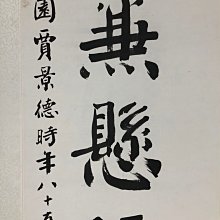 兼懸
園賈景德時年八十五